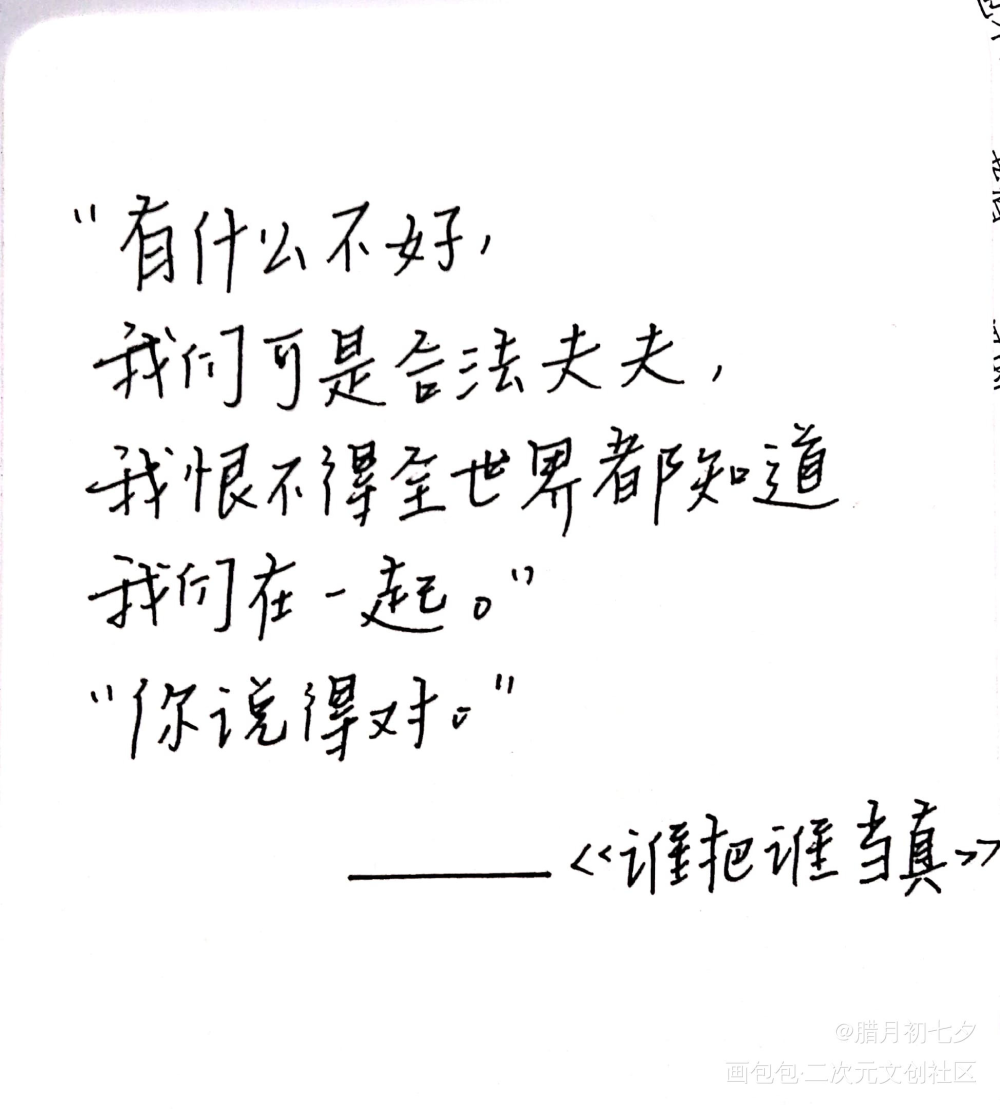 “有什么不好，
我们可是合法夫夫，
我恨不得全世界都知道
我们在一起。”
“你说得对。”
——《谁把谁当真》
@腊月初七夕
画包包·二次元文创社区